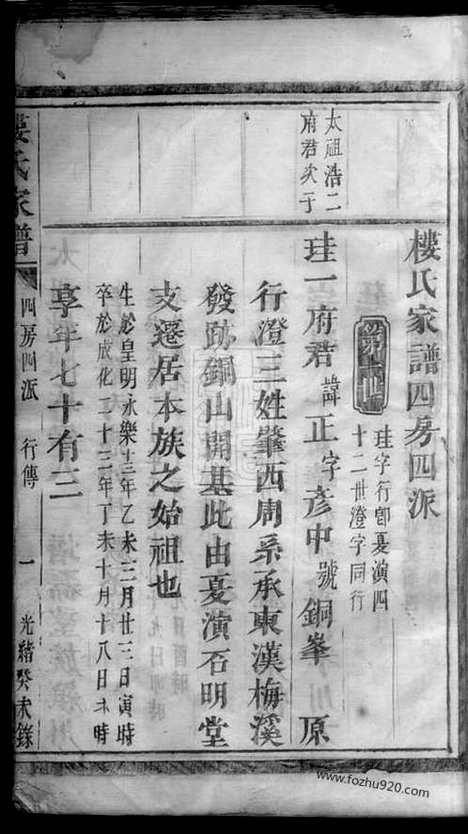 樓氏家譜四房四派
珪字行卽憂演四
十二世澄字同行
太祖浩二
府君次子
珪一府君諱正字彥中號銅峯原
行澄三姓肇西周系承東漢梅溪
發跡銅山開基此由憂演石明堂
支遷居本族之始祖也
生於皇明永樂十三年乙未二月廿三日寅時
卒於成化二十三年丁未十月十八日未時
享年七十有三
樓氏家譜
四房四派
行傳
一
光緒癸未錄
www.fozhu920.com